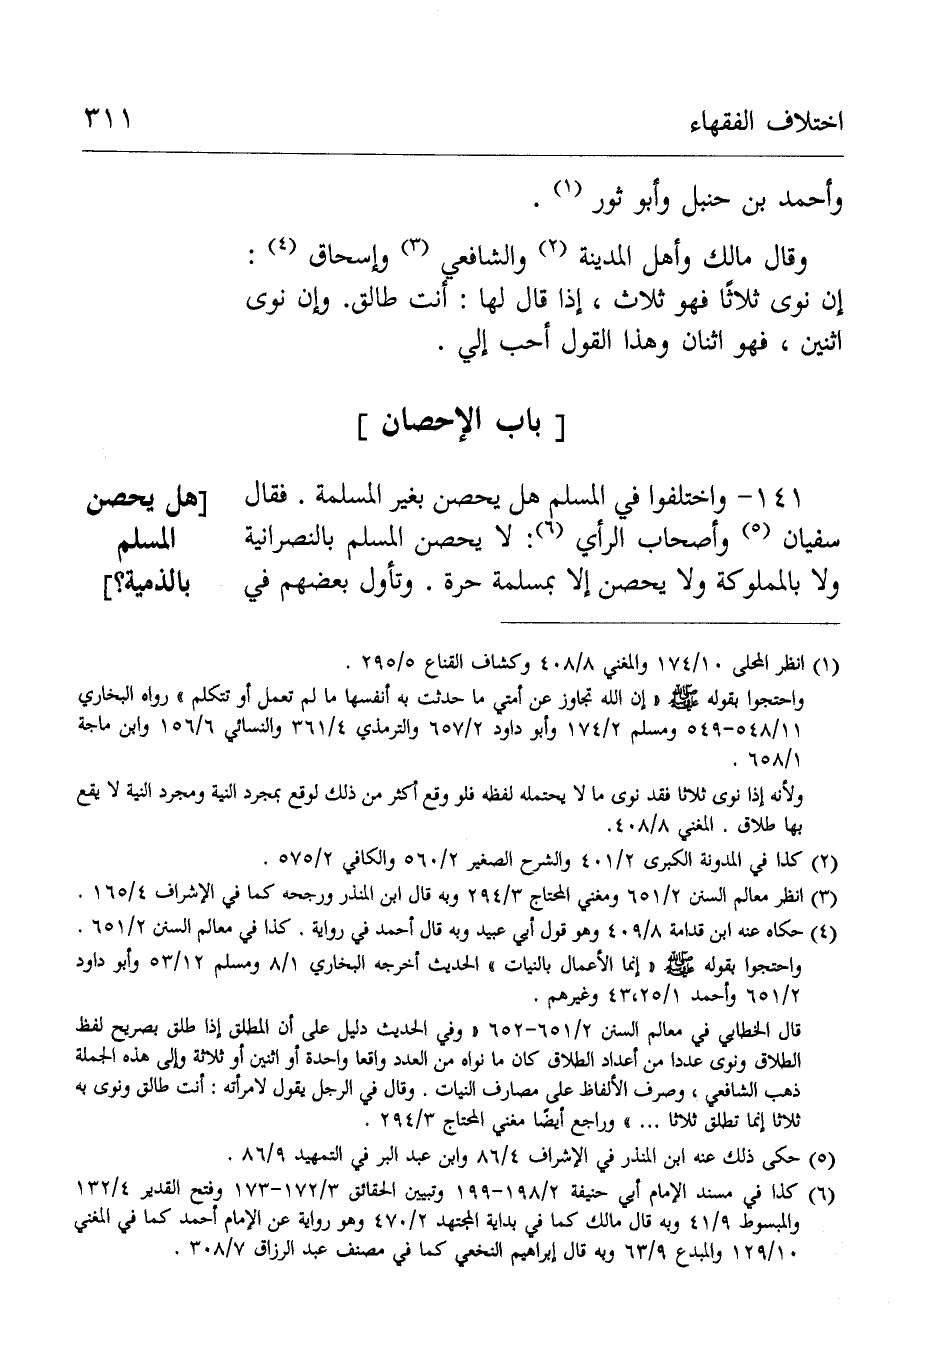 اختلاف الفقهاء ٣١١
وأحمد بن حنبل وأبو ثور (١) .
وقال مالك وأهل المدينة (٢) والشافعي (٣) وإسحاق (٤) :
إن نوى ثلاثًا فهو ثلاث ، إذا قال لها : أنت طالق. وإن نوى
اثنين ، فهو اثنان وهذا القول أحب إلي .
[ باب الإحصان ]
١٤١- واختلفوا في المسلم هل يحصن بغير المسلمة . فقال
سفيان (٥) وأصحاب الرأي (٦): لا يحصن المسلم بالنصرانية
ولا بالمملوكة ولا يحصن إلا بمسلمة حرة . وتأول بعضهم في
[هل يحصن
المسلم
بالذمية؟]
(١) انظر المحلى ١٧٤/١٠ والمغني ٤٠٨/٨ وكشاف القناع ٢٩٥/٥ .
واحتجوا بقوله ﷺ « إن الله تجاوز عن أمتي ما حدثت به أنفسها ما لم تعمل أو تتكلم » رواه البخاري
٥٤٨/١١-٥٤٩ ومسلم ١٧٤/٢ وأبو داود ٦٥٧/٢ والترمذي ٣٦١/٤ والنسائي ١٥٦/٦ وابن ماجة
٦٥٨/١ .
ولأنه إذا نوى ثلاثا فقد نوى ما لا يحتمله لفظه فلو وقع أكثر من ذلك لوقع بمجرد النية ومجرد النية لا يقع
بها طلاق . المغني ٤٠٨/٨.
(٢) كذا في المدونة الكبرى ٤٠١/٢ والشرح الصغير ٥٦٠/٢ والكافي ٥٧٥/٢ .
(٣) انظر معالم السنن ٦٥١/٢ ومغني المحتاج ٢٩٤/٣ وبه قال ابن المنذر ورجحه كما في الإشراف ١٦٥/٤ .
(٤) حكاه عنه ابن قدامة ٤٠٩/٨ وهو قول أبي عبيد وبه قال أحمد في رواية . كذا في معالم السنن ٦٥١/٢ .
واحتجوا بقوله ﷺ « إنما الأعمال بالنيات » الحديث أخرجه البخاري ٨/١ ومسلم ٥٣/١٢ وأبو داود
٦٥١/٢ وأحمد ٤٣،٢٥/١ وغيرهم .
قال الخطابي في معالم السنن ٦٥١/٢-٦٥٢ « وفي الحديث دليل على أن المطلق إذا طلق بصريح لفظ
الطلاق ونوى عددا من أعداد الطلاق كان ما نواه من العدد واقعا واحدة أو اثنين أو ثلاثة وإلى هذه الجملة
ذهب الشافعي ، وصرف الألفاظ على مصارف النيات . وقال في الرجل يقول لامرأته : أنت طالق ونوى به
ثلاثا إنما تطلق ثلاثا ... » وراجع أيضًا مغني المحتاج ٢٩٤/٣ .
(٥) حكى ذلك عنه ابن المنذر في الإشراف ٨٦/٤ وابن عبد البر في التمهيد ٨٦/٩ .
(٦) كذا في مسند الإمام أبي حنيفة ١٩٨/٢-١٩٩ وتبيين الحقائق ١٧٢/٣-١٧٣ وفتح القدير ١٣٢/٤
والمبسوط ٤١/٩ وبه قال مالك كما في بداية المجتهد ٤٧٠/٢ وهو رواية عن الإمام أحمد كما في المغني
١٢٩/١٠ والمبدع ٦٣/٩ وبه قال إبراهيم النخعي كما في مصنف عبد الرزاق ٣٠٨/٧ .